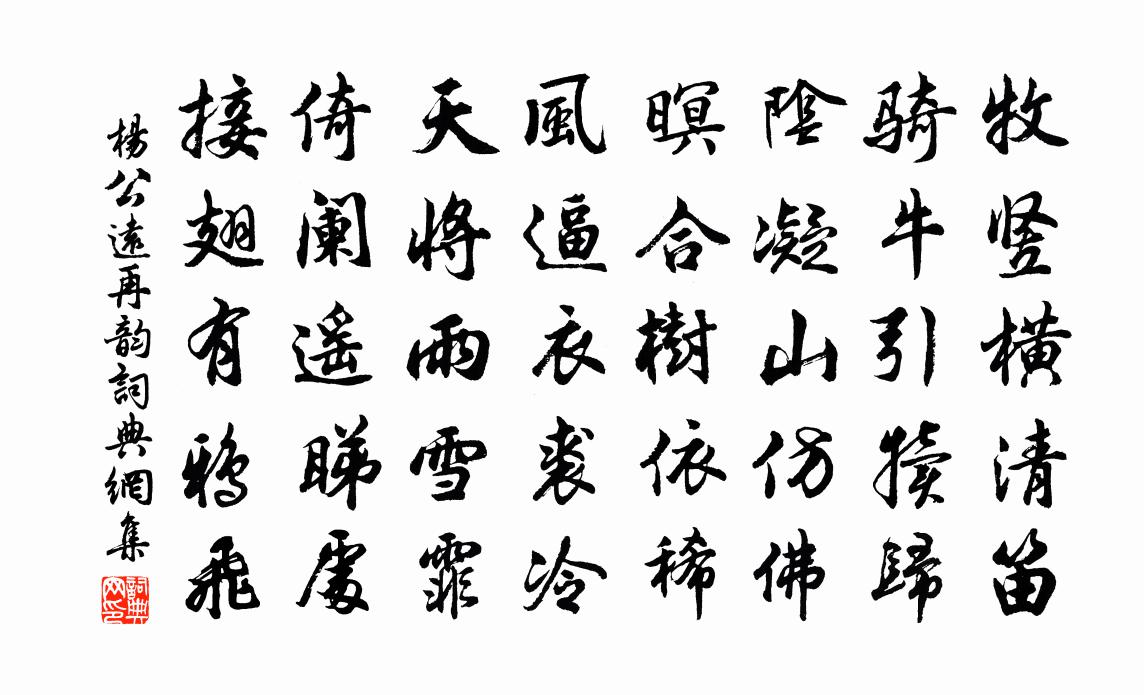 牧竖橫清笛
骑牛引犢歸
陰凝山仿佛
暝合樹依稀
風逼衣裘冷
天將雨雪霏
倚阑遥睇處
接翅有鴉飛
楊公遠再韵詞典網集
詞典
网印